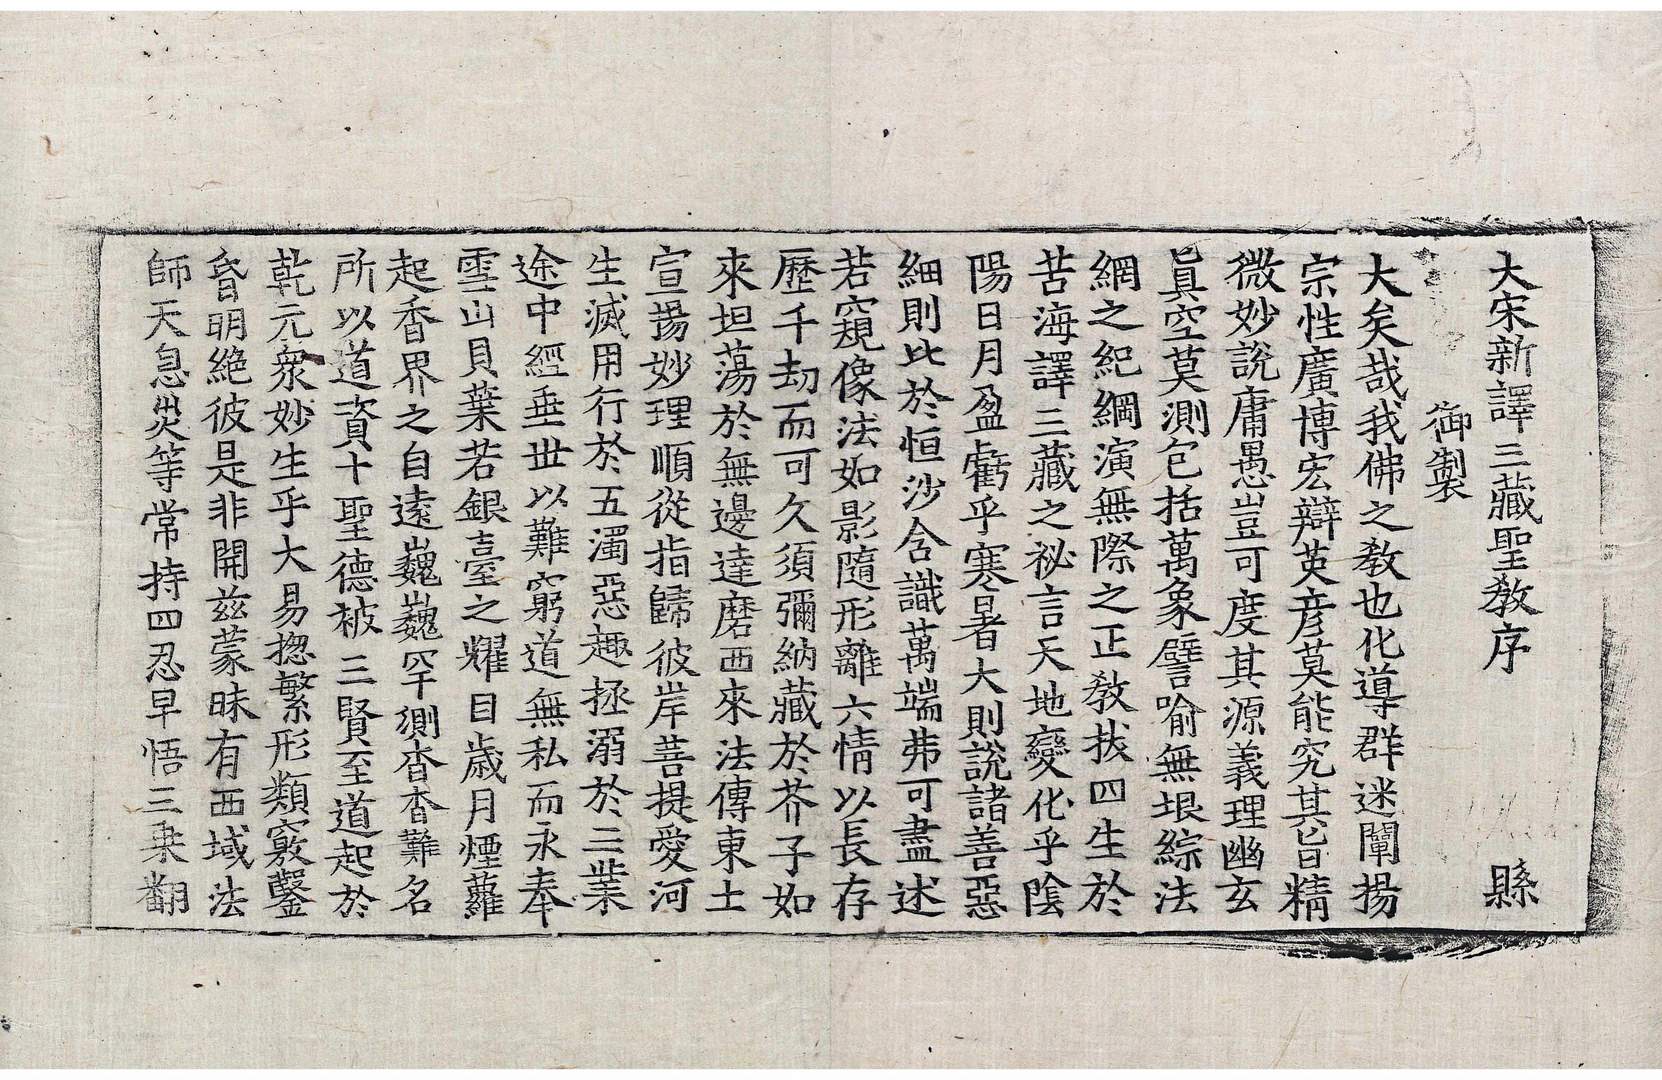 大宋新譯三藏聖教序 縣
御製
大矣哉我佛之教也化導群迷闡揚
宗性廣博宏辯英彦莫能究其旨精
微妙說庸愚豈可度其源義理幽玄
真空莫測包括萬象譬喻無垠綜法
網之紀綱演無際之正教拔四生於
苦海譯三藏之祕言天地變化乎陰
陽日月盈虧乎寒暑大則說諸善惡
細則比於恒沙含識萬端弗可盡述
若窺像法如影隨形離六情以長存
歷千劫而可久須彌納藏於芥子如
來坦蕩於無邊達磨西來法傳東土
宣揚妙理順從指歸彼岸菩提愛河
生滅用行於五濁惡趣拯溺於三業
途中經垂世以難窮道無私而永奉
雪山貝葉若銀臺之耀目歲月煙蘿
起香界之自遠巍巍罕測杳杳難名
所以道資十聖德被三賢至道起於
乾元衆妙生乎大易揔繁形類竅鑿
昏明絶彼是非開茲蒙昧有西域法
師天息災等常持四忍早悟三乘翻